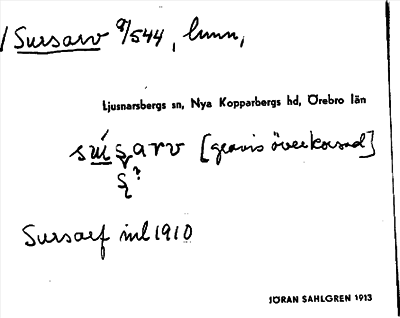 / Sursarv 9/544, hmn,
Ljusnarsbergs sn, Nya Kopparbergs hd, Örebro län
[gravis överkorsad]
?
Sursarf inl 1910
JÖRAN SAHLGREN 1913